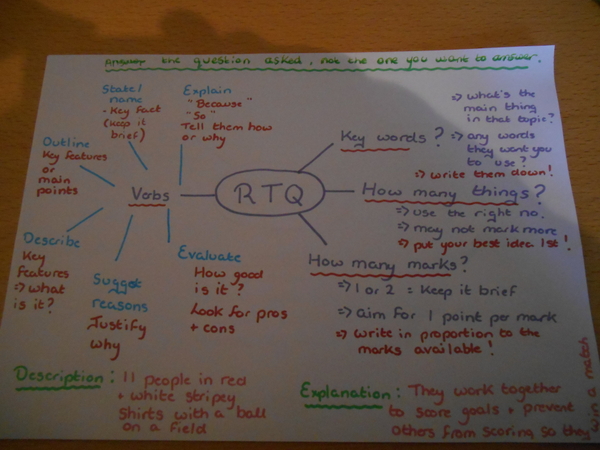 Answer the question asked, not the one you want to answer.
State/
name
- Key fact
(keep it
brief)
Explain
"Because"
"So"
Tell them how
or why
Outline
Key features
or main
points
Verbs
Describe
Key
features
⇒ what
is it?
Suggest
reasons
Justify
why
Evaluate
How good
is it?
Look for pros
+ cons
RTQ
Key words?
⇒ what's the
main thing
in that topic?
⇒ any words
they want you
to use?
⇒ write them down!
How many things?
⇒ use the right no.
⇒ may not mark more
⇒ put your best idea 1st!
How many marks?
⇒ 1 or 2 = Keep it brief
⇒ Aim for 1 point per mark
⇒ Write in proportion to the
marks available!
Description: 11 people in red
+ white stripey
shirts with a ball
on a field
Explanation: They work together
to score goals + prevent
others from scoring so they
win a match